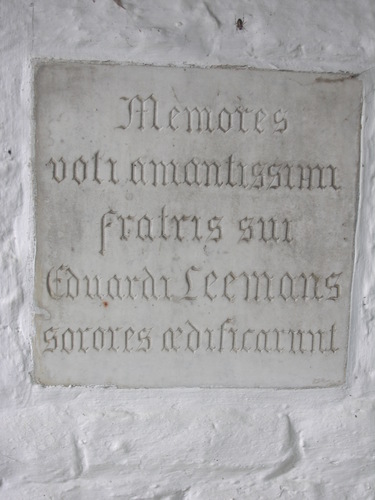 Memores
voti amantissimi
fratris sui
Eduardi Leemans
sorores ædificarunt